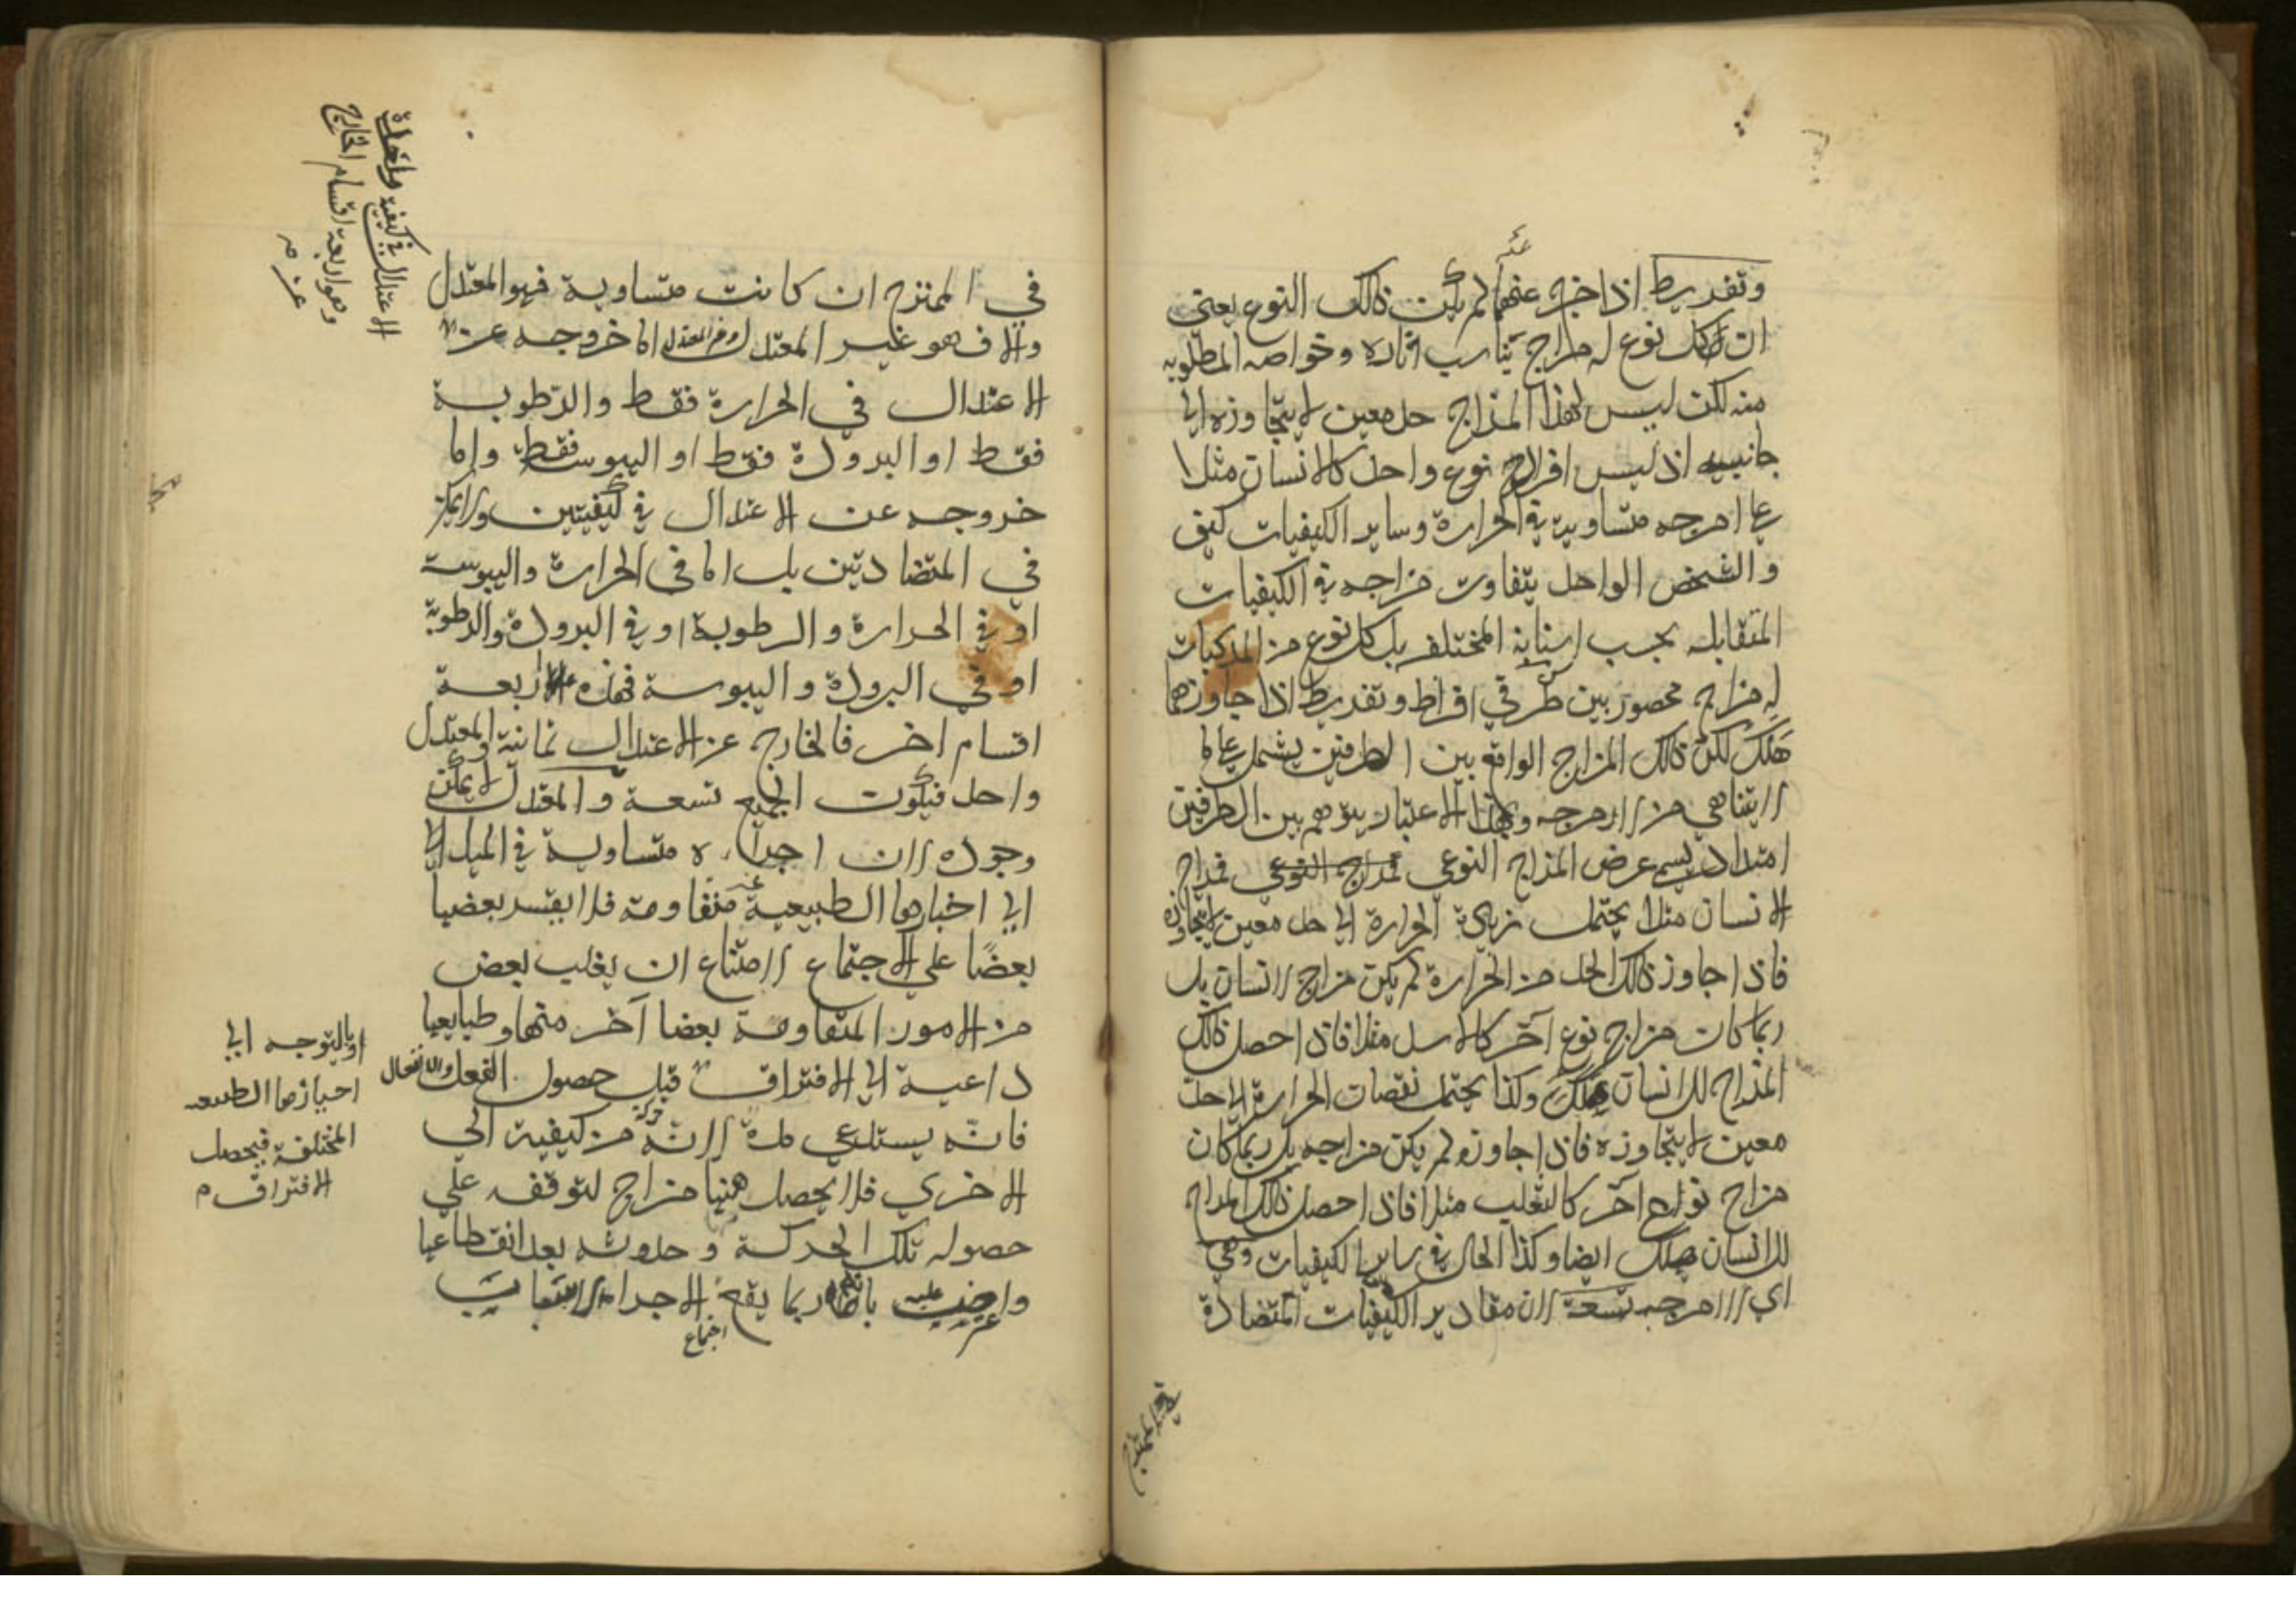 وتفريط اذا خرج عنهما لم يكن ذالك النوع يعني
ان لكل نوع له مزاج يناسب آثاره وخواصه المطلوبه
منه لكن ليس لهذا المزاج حد معين لا يتجاوزه الي
جانبيه اذ ليس افراد نوع واحد كالانسان مثلا
علي امزجه متساوية في الحرارة وساير الكيفيات كيف
والشخص الواحد يتفاوت مزاجه في الكيفيات
المتقابله بحسب اسنانه المختلفه بل كل نوع من المركبات
له مزاج محصور بين طرفي افراط وتفريط اذا جاوزهما
هلك لكن ذالك المزاج الواقع بين الطرفين يشمل علي ما
لا يتناهي من الامزجه وبهذا الاعتبار يتوهم بين الطرفين
امتداد يسمي عرض المزاج النوعي فمزاج
الانسان مثلا يحتمل زيادة الحرارة الي حد معين لا يتجاوزه
فاذا جاوز ذالك الحد من الحرارة لم يكن مزاج الانسان بل
ربما كان مزاج نوع آخر كالاسد مثلا فاذا حصل ذالك
المزاج للانسان هلك وكذا يحتمل نقصان الحرارة الي حد
معين لا يتجاوزه فاذا جاوزه لم يكن مزاجه بل ربما كان
مزاج نوع آخر كالثعلب مثلا فاذا حصل ذالك المزاج
للانسان هلك ايضا وكذا الحال في ساير الكيفيات وهي
اي الامزجه تسعة لان مقادير الكيفيات المتضادة
في الممتزج
في الممتزج ان كانت متساوية فهو المعتدل
والا فهو غير المعتدل اما خروجه عن
الاعتدال في الحرارة فقط والرطوبة
فقط او البرودة فقط او اليبوسة فقط واما
خروجه عن الاعتدال في كيفيتين ولا يمكن
في المتضادتين بل اما في الحرارة واليبوسة
او في الحرارة والرطوبة او في البرودة والرطوبة
او في البرودة واليبوسة فهذه اربعة
اقسام اخر فالخارج عن الاعتدال ثمانية والمعتدل
واحد فيكون الجميع تسعة والمعتدل لا يمكن
وجوده لان اجزاءه متساوية في الميل
الي احيازها الطبيعية متقاومة فلا يقسر بعضها
بعضًا علي الاجتماع لامتناع ان يغلب بعض
من الامور المتقاومة بعضا آخر منها وطبايعها
داعية الي الافتراق قبل حصول الفعل والانفعال
فانه يستدعي مدة لانه حركة من كيفية الي
الاخري فلا يحصل ههنا مزاج لتوقفه علي
حصوله تلك الحركة وحدوثه بعد انقطاعها
واعترض عليه بانه ربما يقع اجتماع الاجزاء
الاعتدال في كيفية واحدة
وهو اربعة اقسام الخارج
عن
او بالتوجه الي
احيازها الطبيعيه
المختلفة فيحصل
الافتراق م